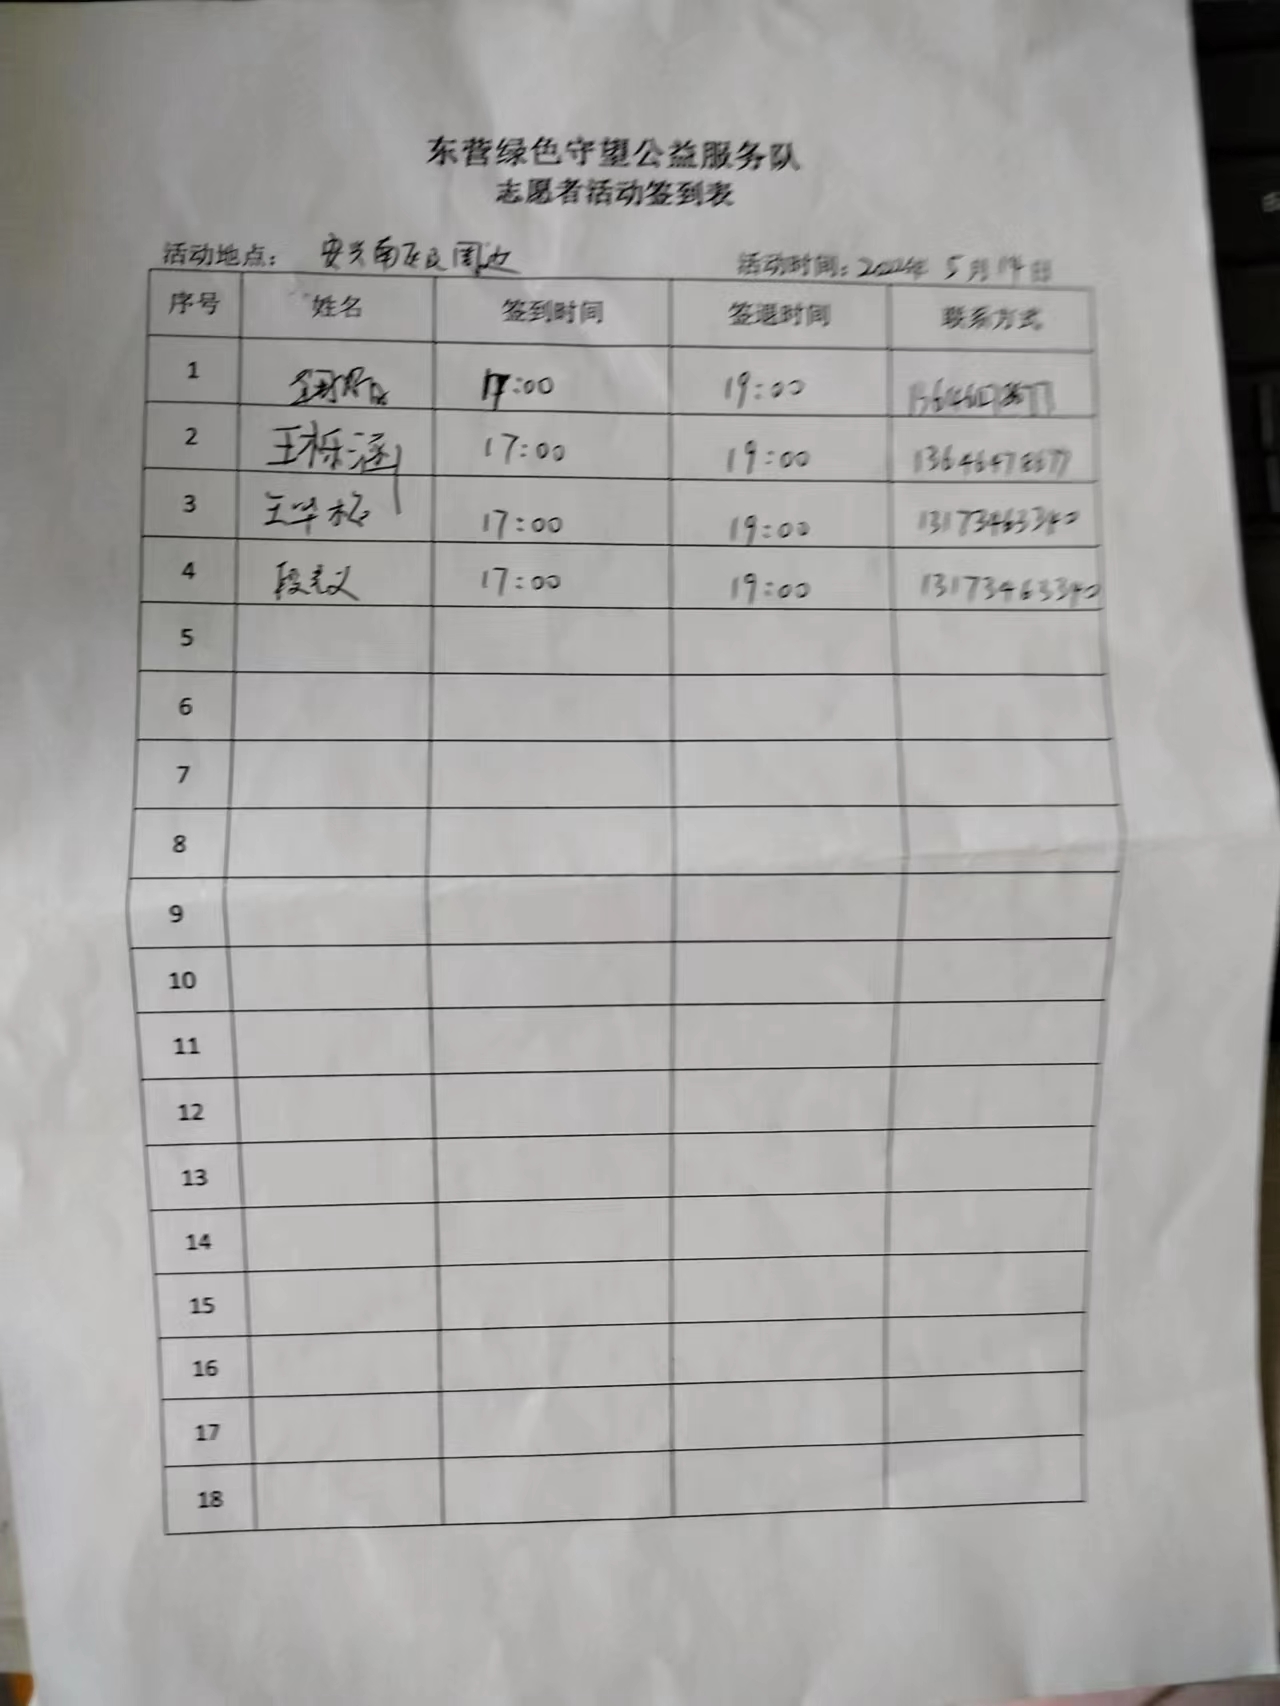 东营绿色守望公益服务队
志愿者活动签到表
活动地点： 安兴南区及周边 活动时间：2022年 5 月 14 日
序号 姓名 签到时间 签退时间 联系方式
1 17:00 19:00
2 王栎涵 17:00 19:00 13646478677
3 王华松 17:00 19:00 13173463340
4 段 义 17:00 19:00 13173463340
5
6
7
8
9
10
11
12
13
14
15
16
17
18